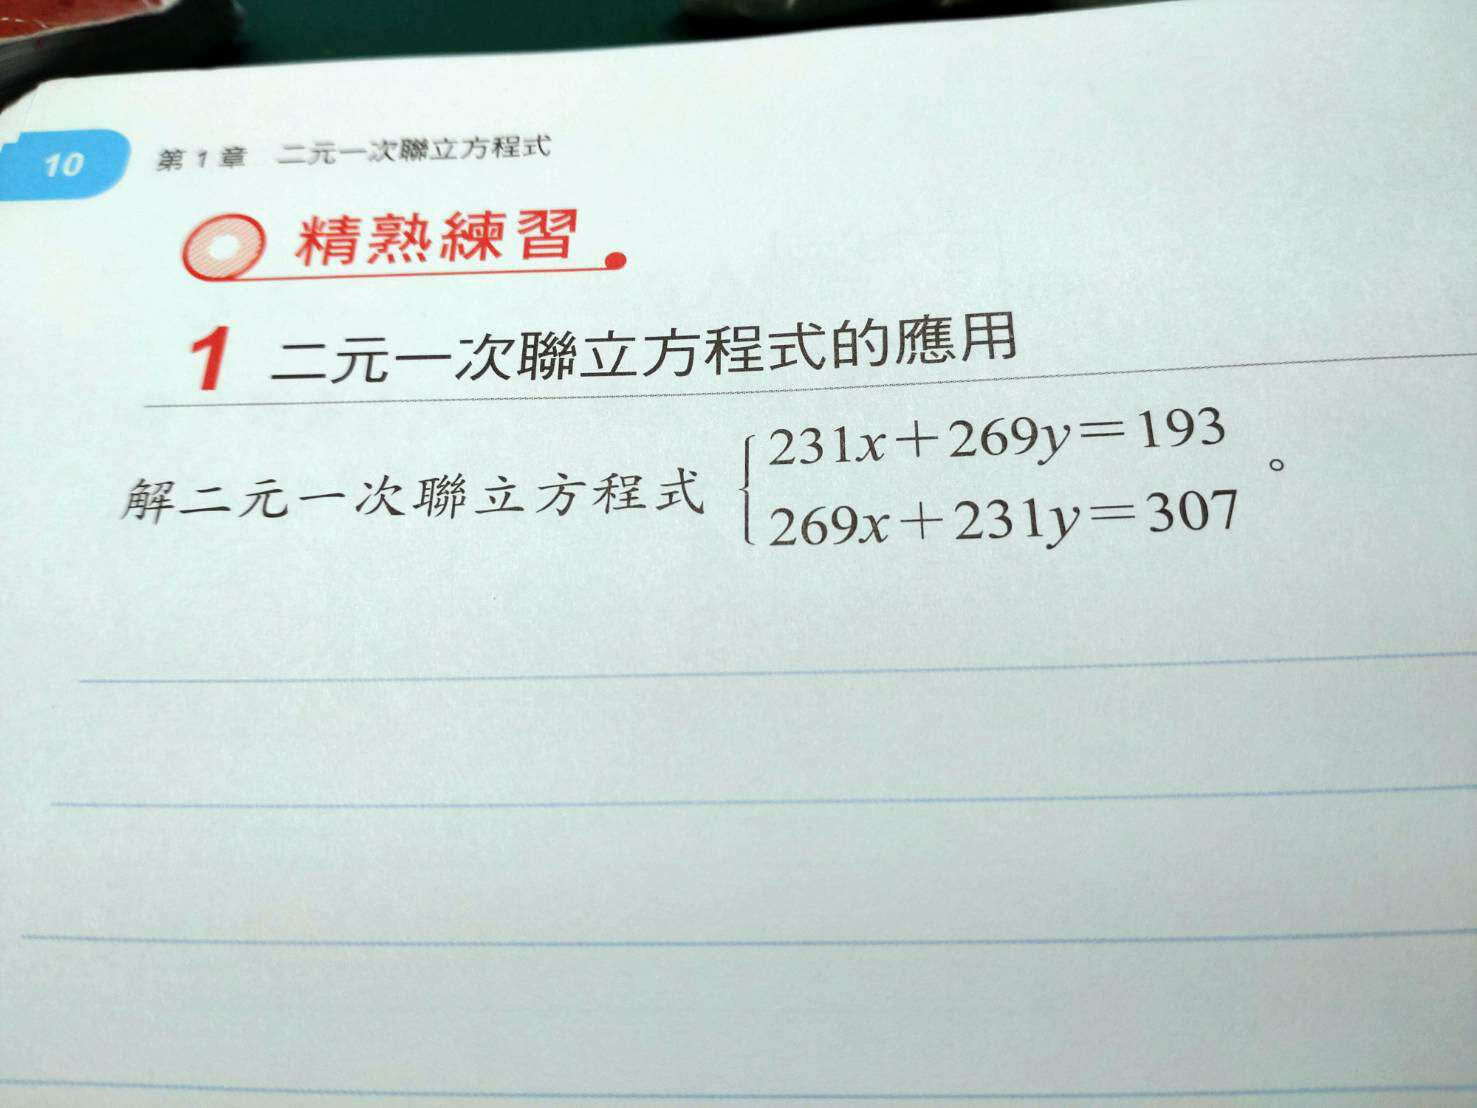 10 第1章 二元一次聯立方程式
精熟練習
1 二元一次聯立方程式的應用
解二元一次聯立方程式 { 231x＋269y＝193
269x＋231y＝307 。